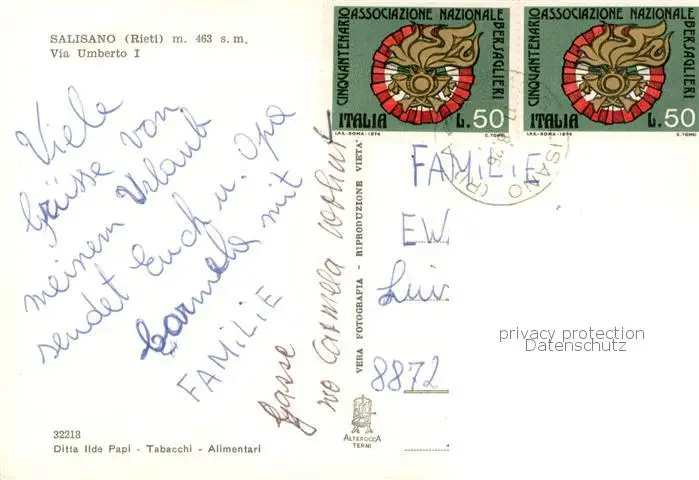 SALISANO (Rieti) m. 463 s. m.
Via Umberto I
Viele
Grüsse von
meinem Urlaub
sendet Euch u. Opa
Carmela mit
FAMiLiE
Gasse
wo Carmela wohnt
32218
Ditta Ilde Papi - Tabacchi - Alimentari
VERA FOTOGRAFIA - RIPRODUZIONE VIETATA
ALTEROCCA
TERNI
CINQUANTENARIO ASSOCIAZIONE NAZIONALE BERSAGLIERI
ITALIA L.50
I.P.S.-ROMA-1974 E. TOMEI
CINQUANTENARIO ASSOCIAZIONE NAZIONALE BERSAGLIERI
ITALIA L.50
I.P.S.-ROMA-1974 E. TOMEI
FAMiLiE
EW
8872
privacy protection
Datenschutz